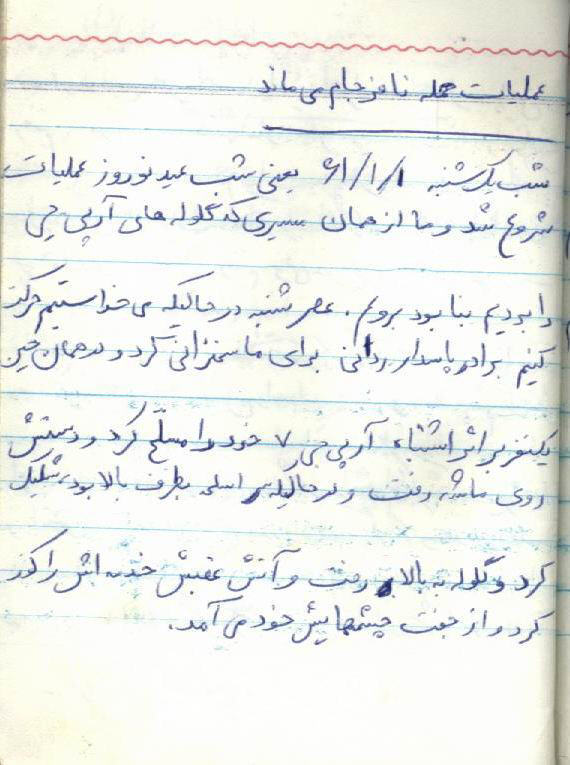 عملیات حمله نافرجام می ماند
شب یک شنبه ۶۱/۱/۱ یعنی شب عید نوروز عملیات
شروع شد و ما از همان مسیری که گلوله های آرپی جی
بنا بود برویم . عصر شنبه در حالیکه می خواستیم حرکت
کنیم برادر پاسدار برای ما سخنرانی کرد و در همان حین
یکنفر بر اثر اشتباه آرپی جی ۷ خود را مسلّح کرد و دستش
روی ماشه رفت و در حالیکه سر اسلحه بطرف بالا بود، شلیک
کرد و گلوله به بالا رفت و آتش عقبش
کرد و از جفت چشمهایش خود می آمد.